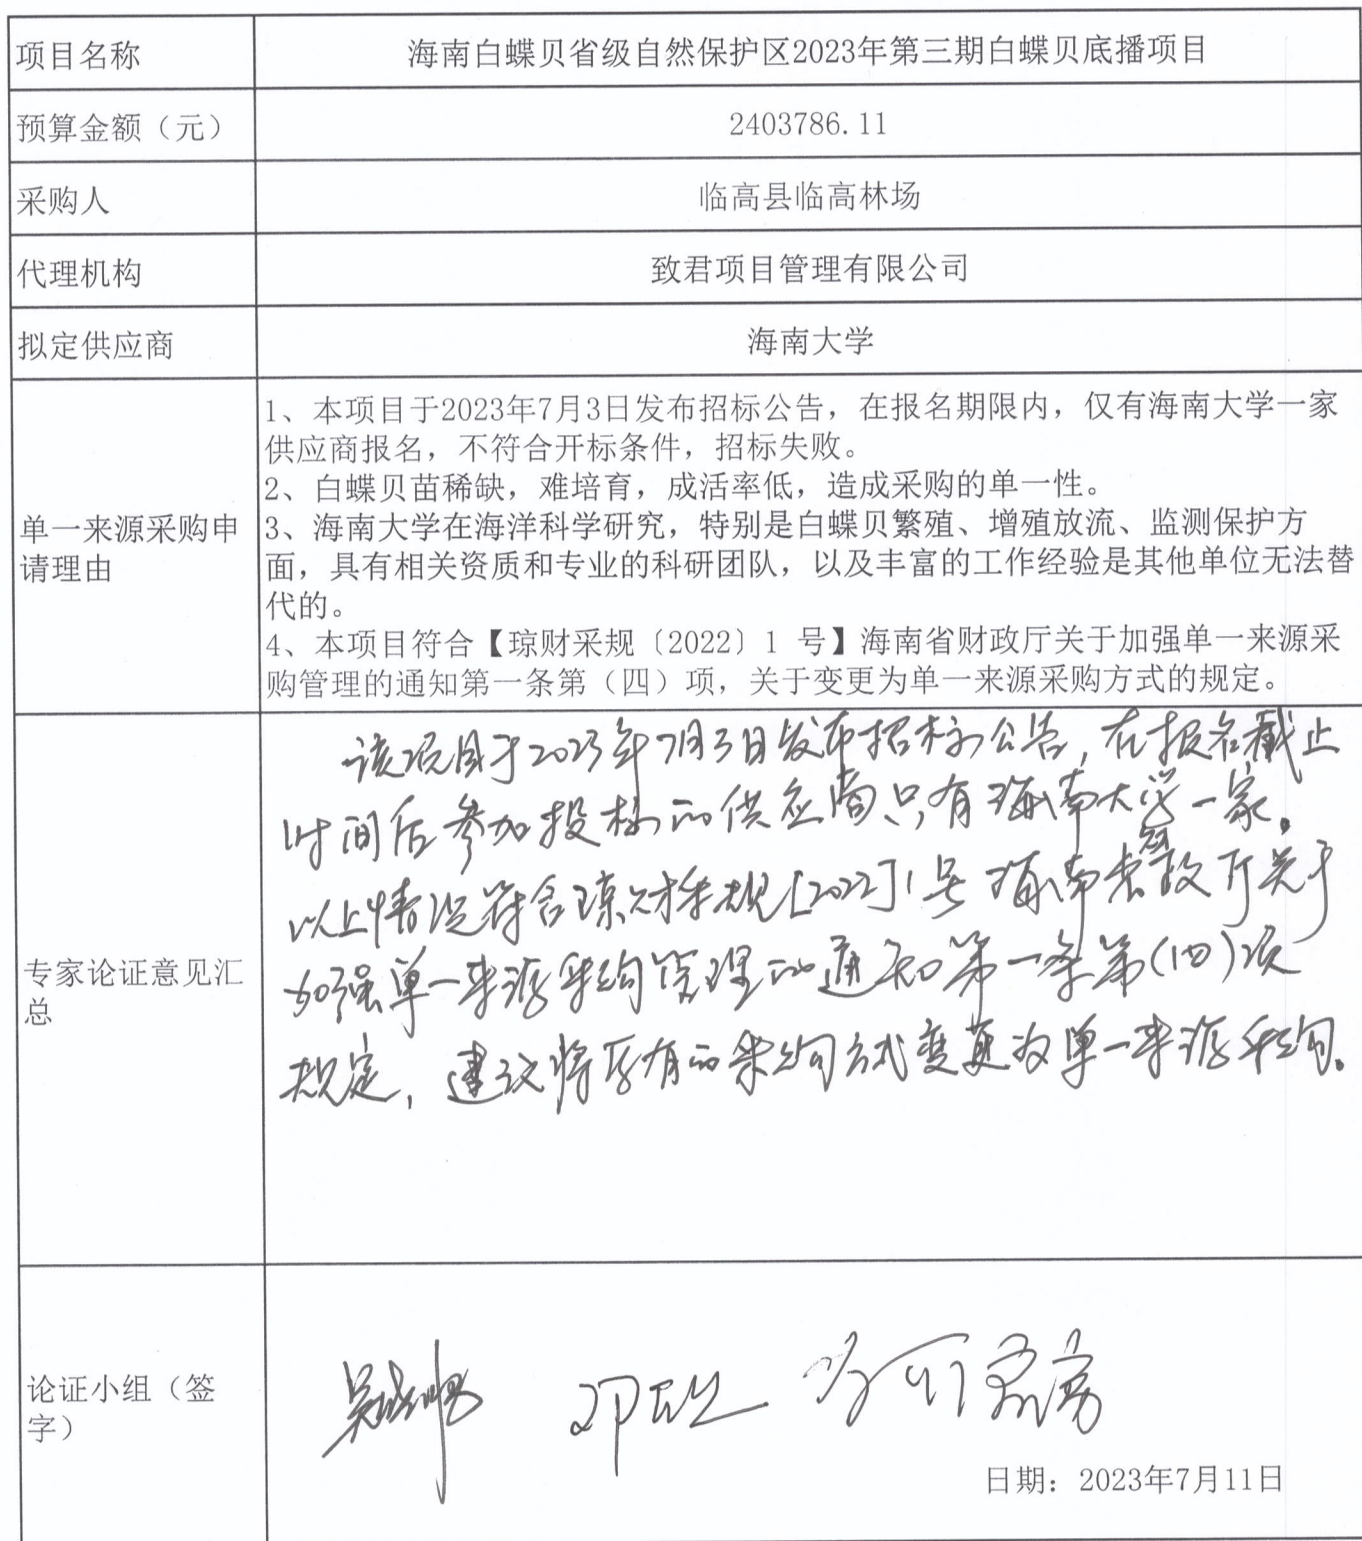 项目名称
海南白蝶贝省级自然保护区2023年第三期白蝶贝底播项目
预算金额（元）
2403786.11
采购人
临高县临高林场
代理机构
致君项目管理有限公司
拟定供应商
海南大学
单一来源采购申
请理由
1、本项目于2023年7月3日发布招标公告，在报名期限内，仅有海南大学一家
供应商报名，不符合开标条件，招标失败。
2、白蝶贝苗稀缺，难培育，成活率低，造成采购的单一性。
3、海南大学在海洋科学研究，特别是白蝶贝繁殖、增殖放流、监测保护方
面，具有相关资质和专业的科研团队，以及丰富的工作经验是其他单位无法替
代的。
4、本项目符合【琼财采规〔2022〕1 号】海南省财政厅关于加强单一来源采
购管理的通知第一条第（四）项，关于变更为单一来源采购方式的规定。
专家论证意见汇
总
该项目于2023年7月3日发布招标公告，在报名截止
时间后参加投标的供应商只有海南大学一家。
以上情况符合琼财采规[2022]1号海南省财政厅关于
加强单一来源采购管理的通知第一条第(四)项
规定，建议将原有的采购方式变更为单一来源采购。
论证小组（签
字）
日期：2023年7月11日